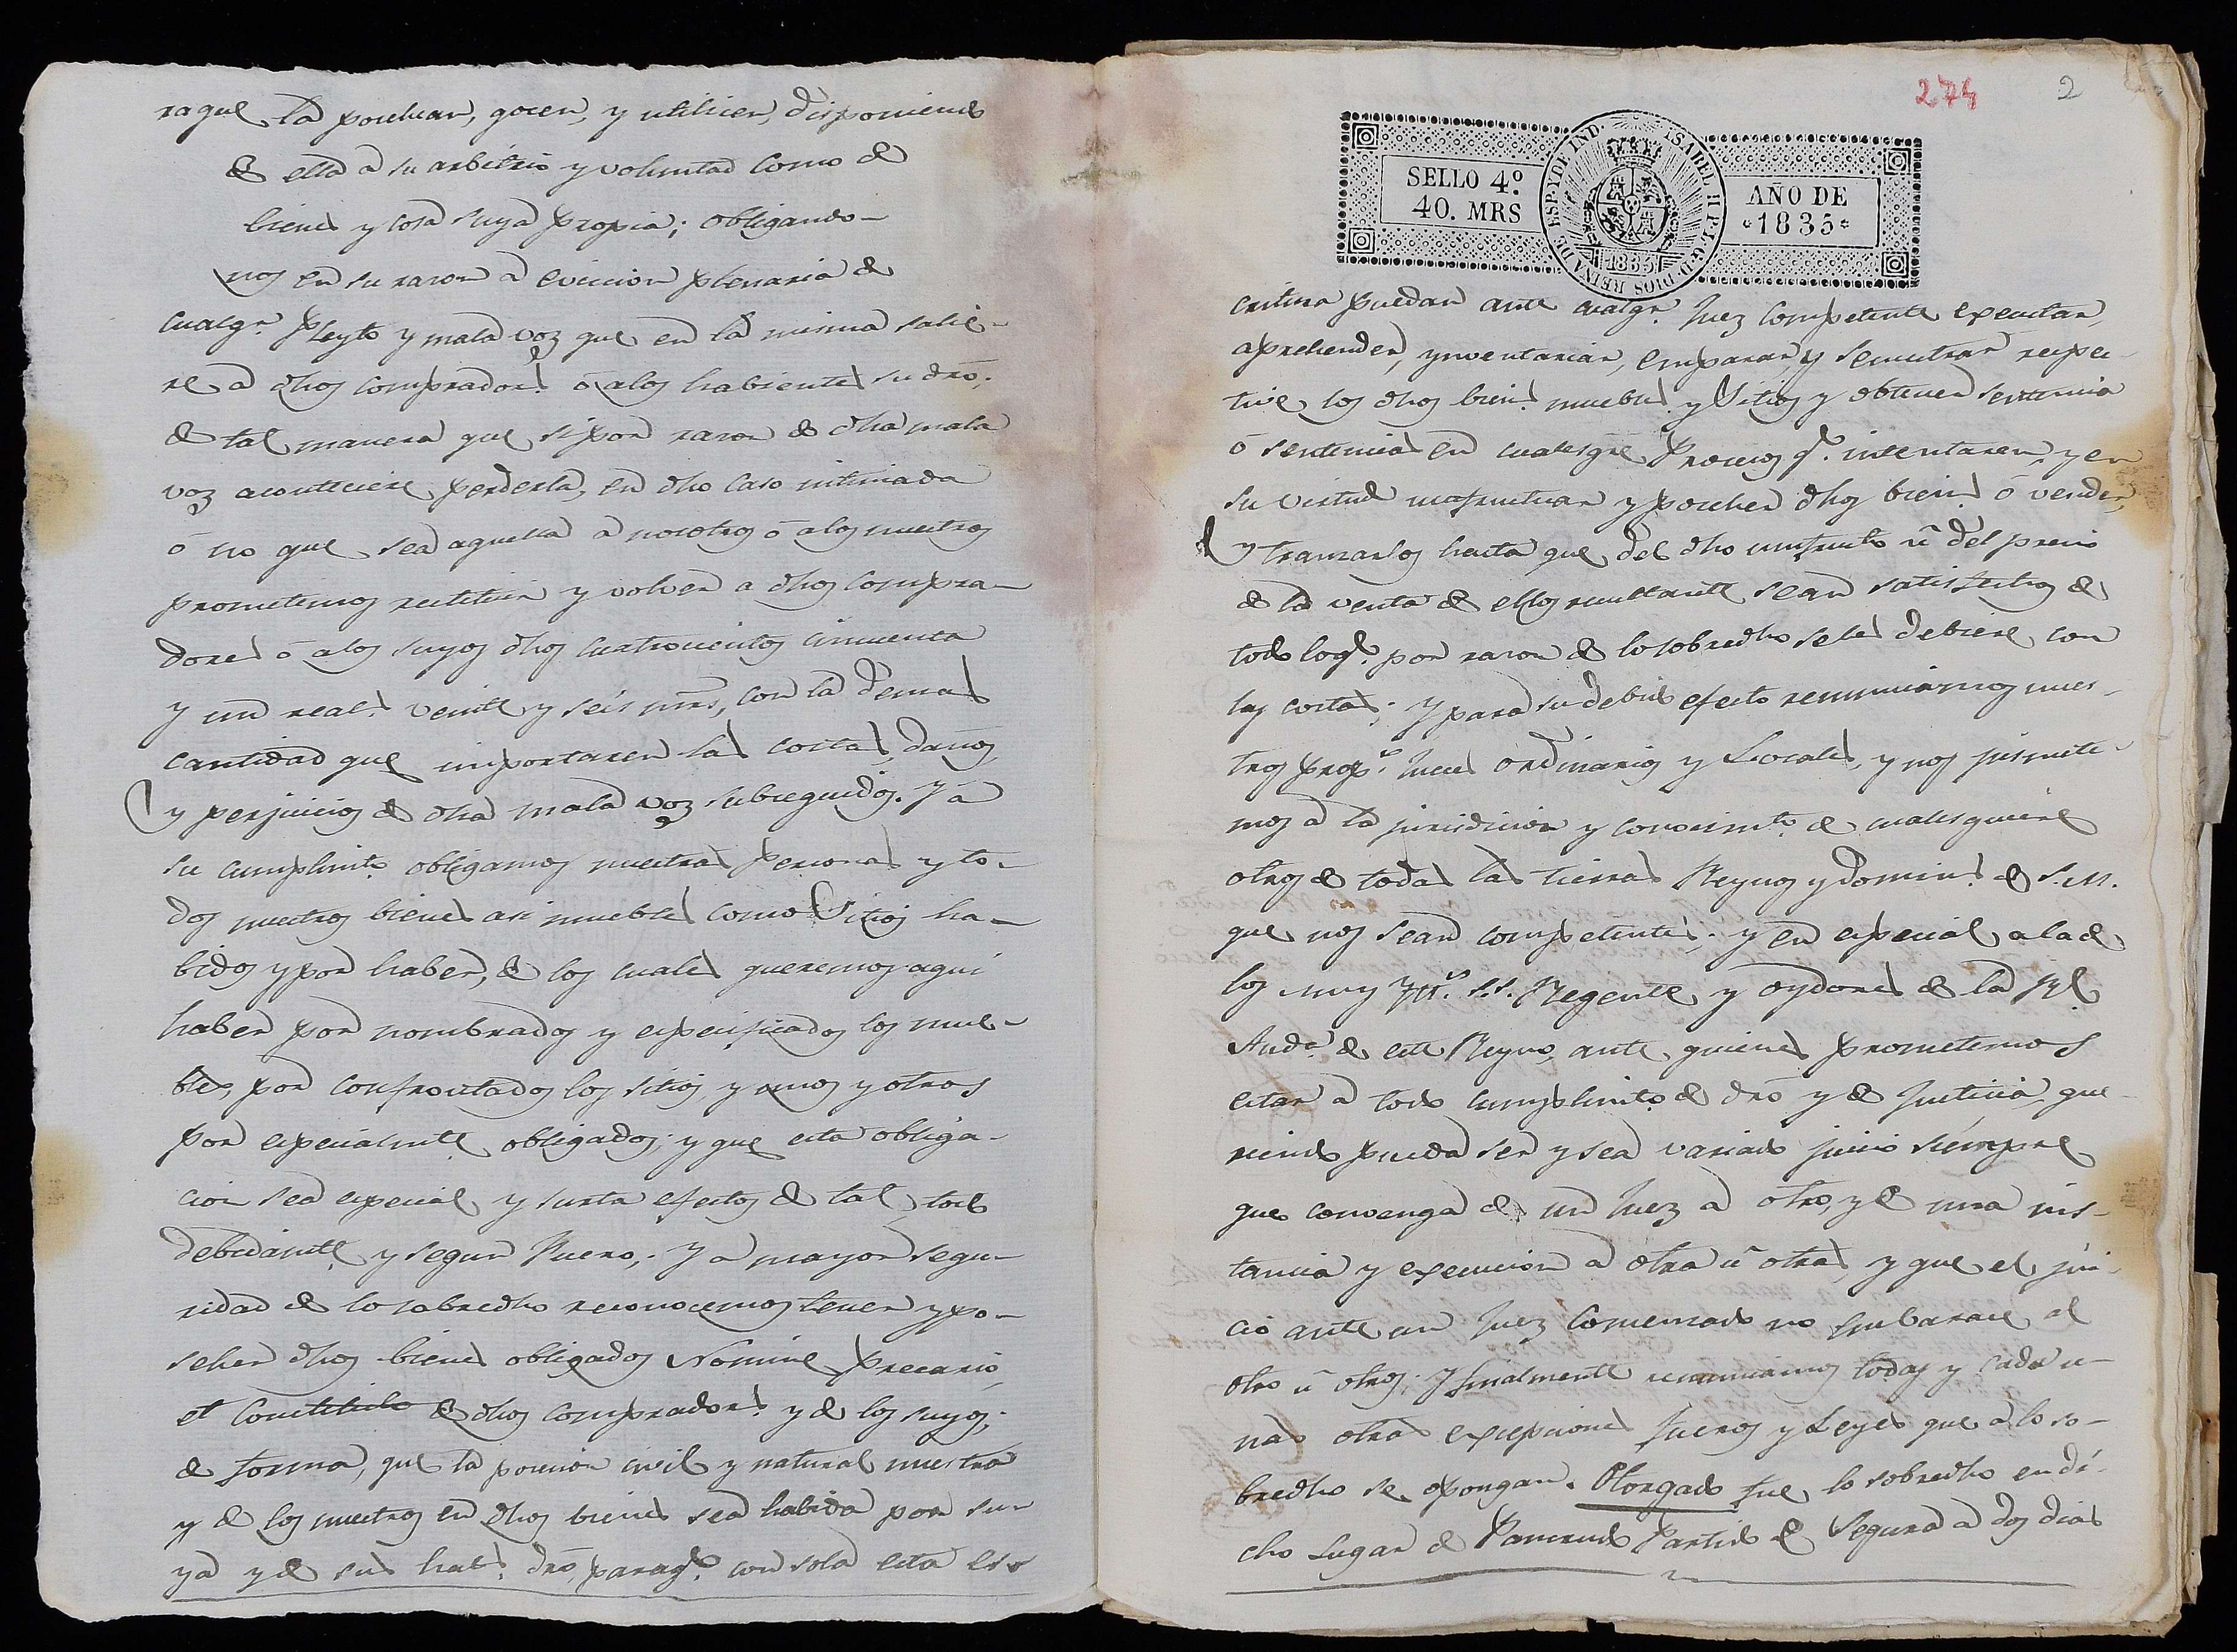 ra que la posehan, gocen, y utilicen, disponiendo
de ella a su arbitrio y voluntad como de
bienes y cosa suya propia; obligando-
nos en su razon a eviccion plenaria de
cualqr. pleyto y mala voz que en la misma salie-
re a dhos compradores ó a los habientes su dro.
de tal manera que si por razon de dha mala
voz aconteciere perderla, en dho caso intimada
ó no que sea aquella a nosotros ó a los nuestros
prometemos restituir y volver a dhos compra-
dores ó a los suyos dhos cuatrocientos cincuenta
y un reals. veinte y seis mrs, con la demas
cantidad que importaren las costas, daños,
y perjuicios de dha mala voz subseguidos. Y a
su cumplimto. obligamos nuestras personas y to-
dos nuestros bienes asi muebles como Sitios ha-
bidos y por haber, de los cuales queremos aqui
haber por nombrados y especificados los mue-
bles, por confrontados los sitios, y unos y otros
por especialmte. obligados; y que esta obliga-
cion sea especial y surta efectos de tal, todo
debidamte. y segun Fuero. Y a mayor segu-
ridad de lo sobredho reconocemos tener y po-
seher dhos bienes obligados Nomine precario,
et Constituto de dhos compradors. y de los suyos;
de forma, que la posesion civil y natural nuestra
y de los nuestros en dhos bienes sea habida por su-
ya y de sus habs. dro, para q. con sola esta es-
274 2
SELLO 4º.
40. MRS
ISABEL II P. L. G. D DIOS REINA DE ESP. Y DE IND.
1835
AÑO DE
1835
critura puedan ante cualqr. Juez competente executar,
aprehender, ynventariar, emparar, y secuestrar respec-
tive los dhos biens. muebles y Sitios y obtener sentencia
ó sentencias en cualesqre. Procesos q. intentaren, y en
su virtud usufructuar y poseher dhos bienes ó vender,
y tranzarlos hasta que del dho usufruto ú del precio
de la venta de ellos resultante sean satisfechos de
todo loq. por razon de lo sobredho seles debiere con
las costas; Y para su debido efecto renunciamos nues-
tros props. Jueces ordinarios y Locales, y nos jusmete-
mos a la jurisdicion y conocimto. de cualesquiere
otros de todas las tierras Reynos y dominios. de S. M.
que nos sean competentes; y en especial a la de
los muy Ylls. S.S. Regente y oydores de la Rl.
Auda. de este Reyno, ante quienes prometemos
estar a todo cumplimto. de dro y de Justicia, que-
riendo pueda ser y sea variado juicio siempre
que convenga de un Juez a otro, y de una ins-
tancia y execucion a otra ú otras, y que el jui-
cio ante un Juez comenzado no embarace al
otro ú otros; Y finalmente renunciamos todas y cada u-
nas otras excepciones fueros y Leyes que a lo so-
bredho se opongan. Otorgado fue lo sobredho en di-
cho Lugar de Pancrudo Partido de Segura a dos dias